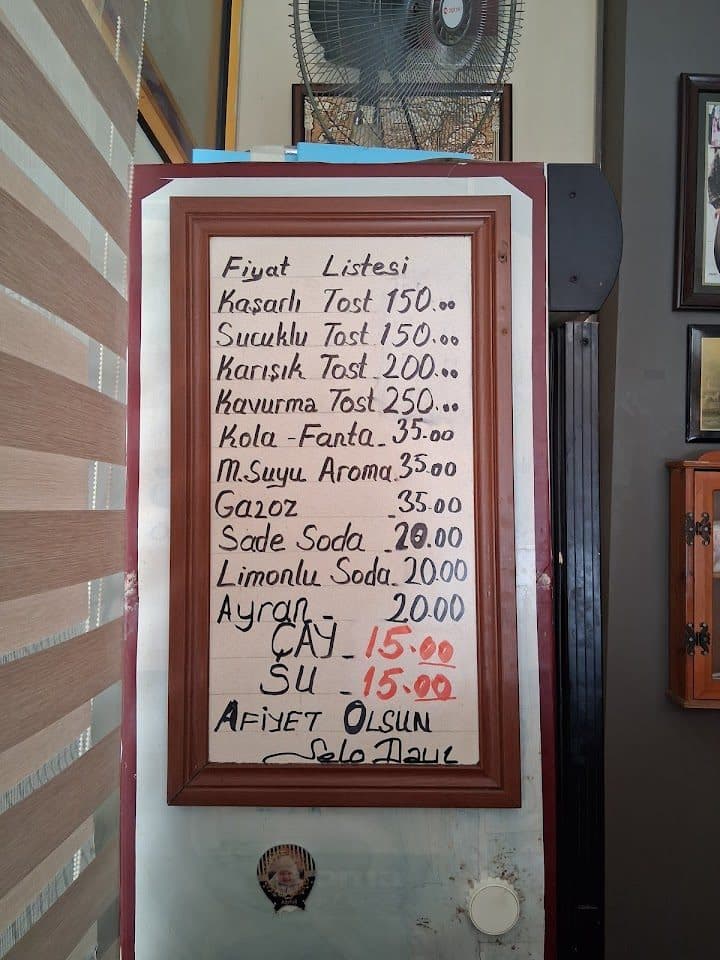 Fiyat Listesi
Kaşarlı Tost 150.00
Sucuklu Tost 150.00
Karışık Tost 200.00
Kavurma Tost 250.00
Kola - Fanta - 35.00
M.Suyu Aroma 35.00
Gazoz - 35.00
Sade Soda - 20.00
Limonlu Soda - 20.00
Ayran - 20.00
ÇAY - 15.00
SU - 15.00
AFİYET OLSUN
Selo